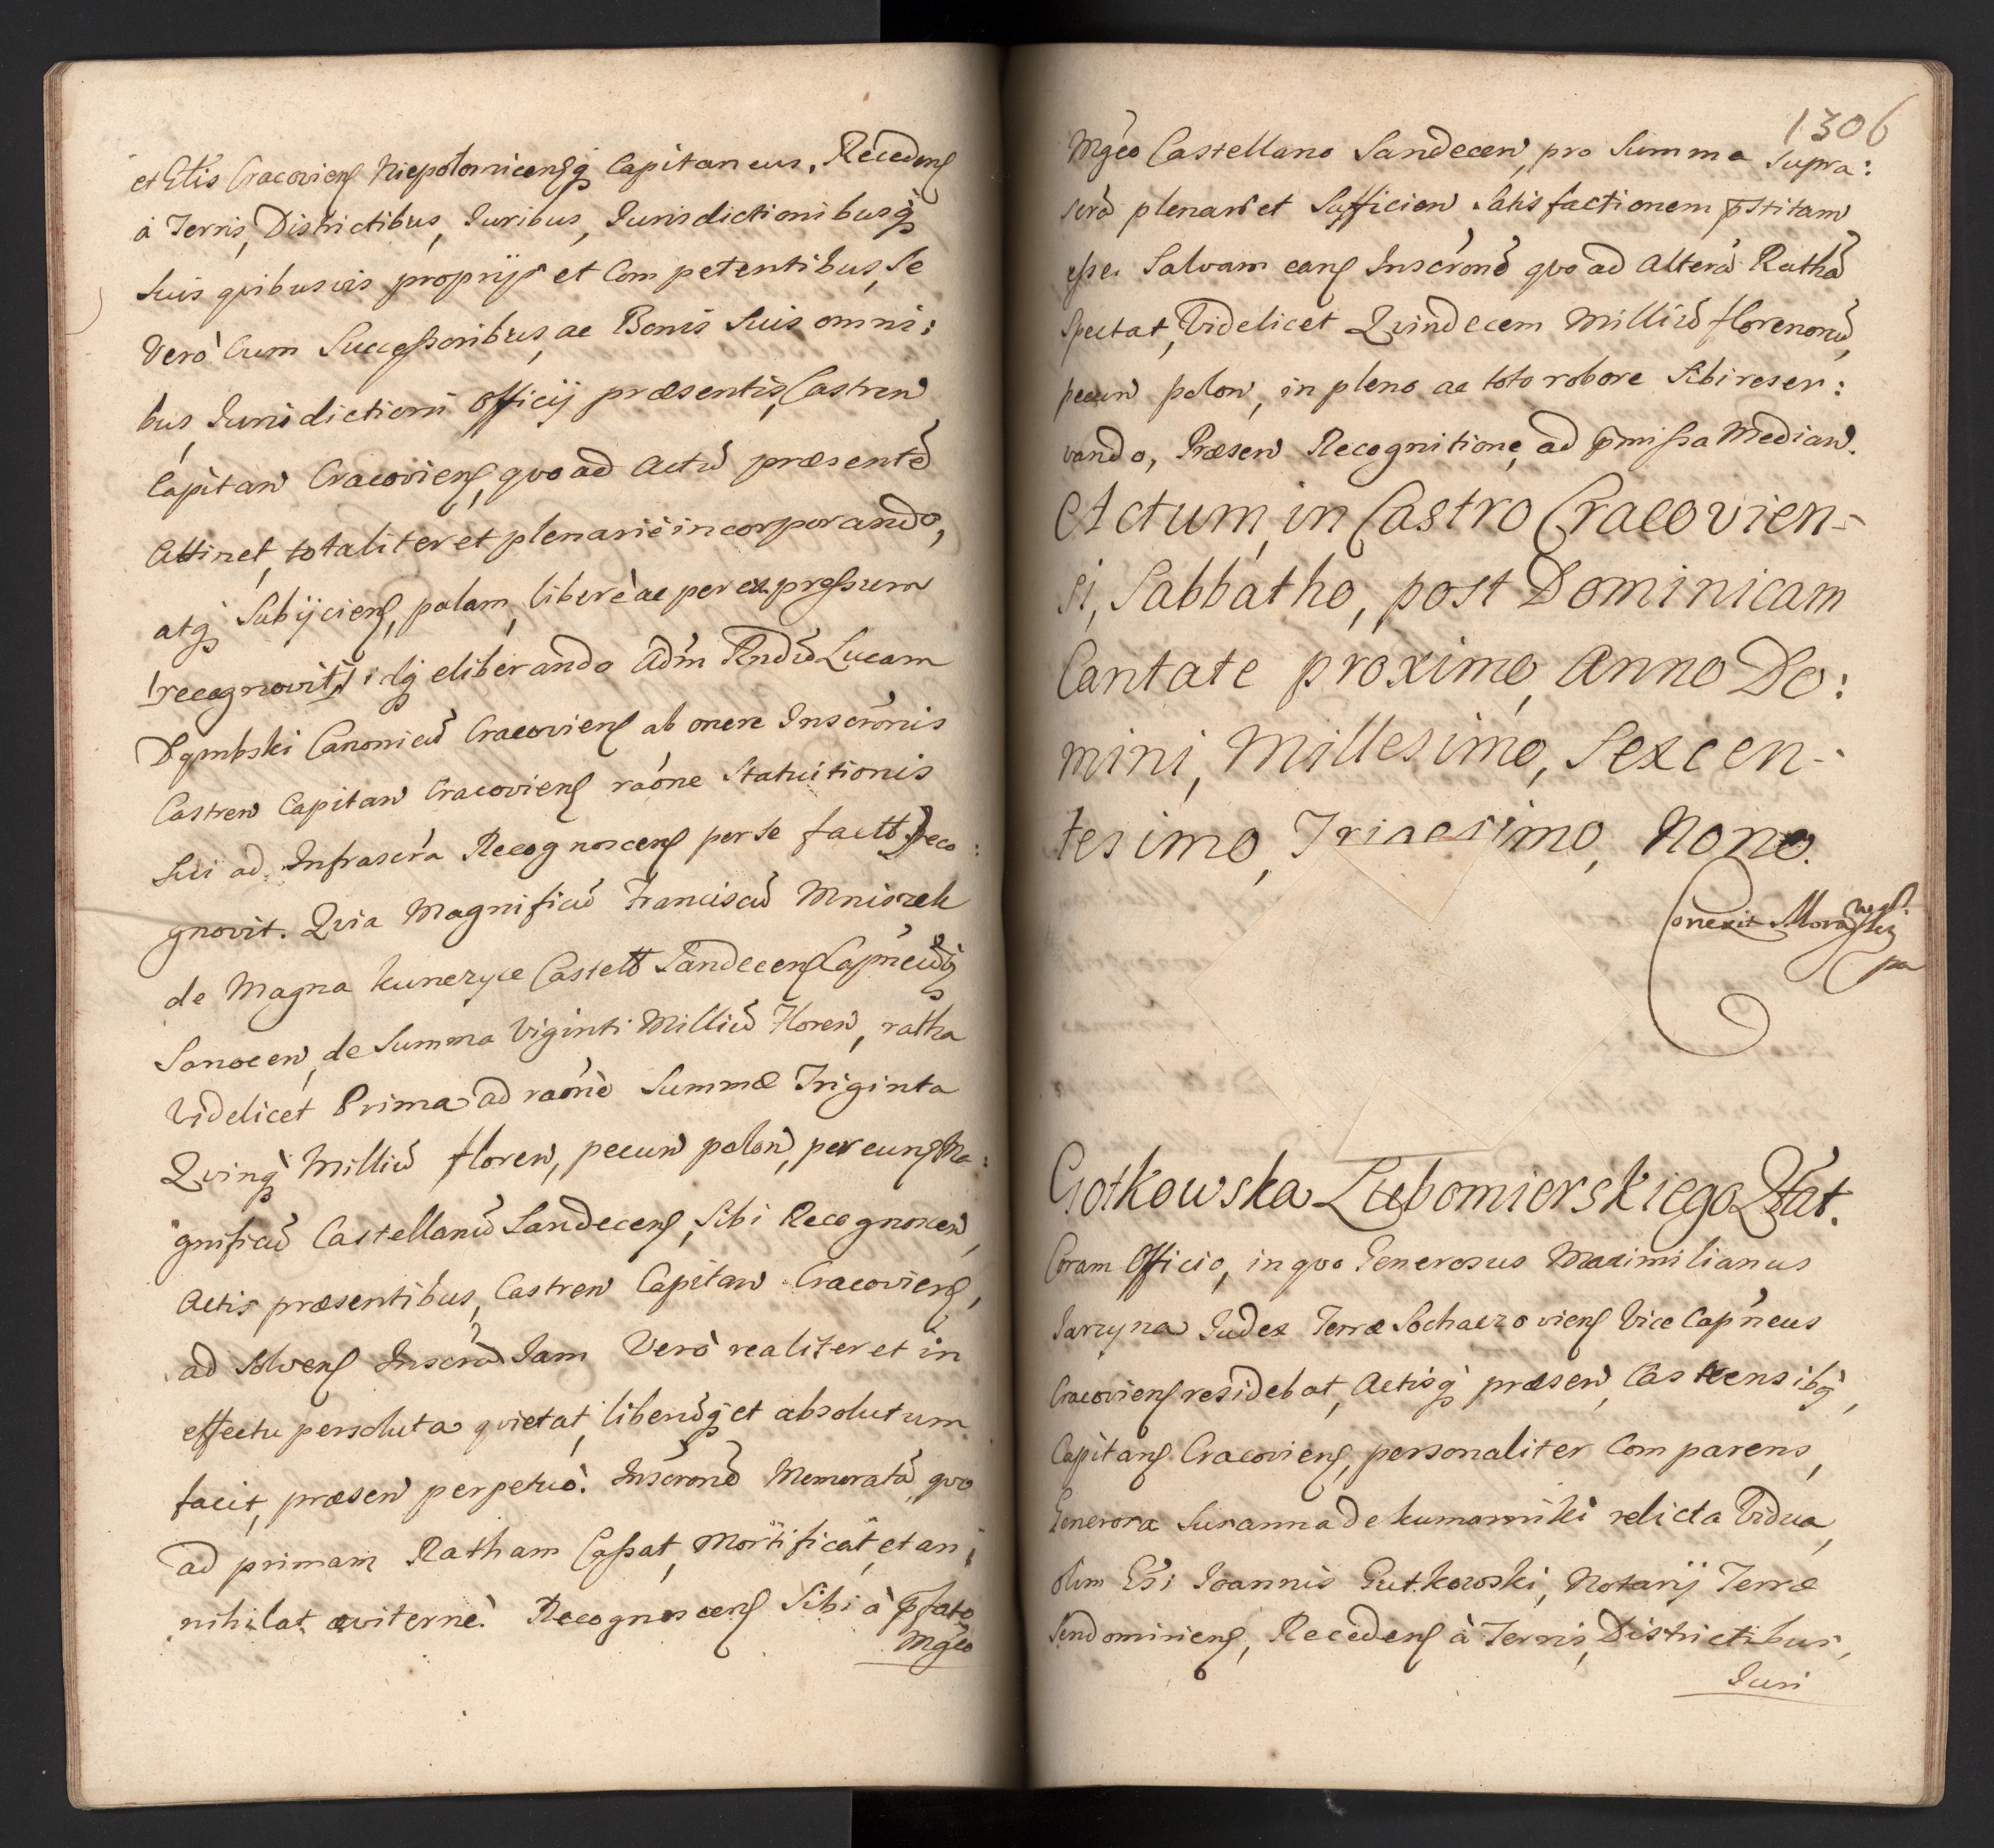 et Gtis Cracovien Niepolomicenq Capitaneus. Recedens
à Terris, Districtibus, Iuribus, Iurisdictionibusq
suis quibusvis proprijs et Competentibus, Se
Verò Cum Successoribus, ac Bonis Suis omni:
bus, Iurisdictioni Officij præsentis, Castren
Capitan Cracovien, quo ad Actū præsentē
Attinet, totaliter et plenariè incorporando,
atq Subijciens, palam, liberè ac per expressum
recognovit, Idq eliberando Adm Rndū Lucam
Dąmbski Canonicū Cracovien ab onere Inscrōnis
Castren Capitan Cracovien raōne Statuitionis
Sui ad Infrascrā Recognoscens per se factt Reco:
gnovit. Quia Magnificū Franciscū Mniszek
de Magna Kunczyce Castell Sandecen Capneūq
Sanocen, de Summa Viginti Milliū Floren, ratha
Videlicet Prima ad raōnē Summæ Triginta
Quinq Milliū floren, pecun polon, per eund Ma:
gnificū Castellanū Sandecen, Sibi Recognoscen,
Actis præsentibus, Castren Capitan Cracovien,
ad Solvend Inscrā Iam Verò realiter et in
effectu persoluta quietat, liberūq et absolutum
facit, præsen perpetuò. Inscrōnē Memoratā, quo
ad primam Ratham Cassat, Mortificat, et an:
nihilat æviternè. Recognoscens Sibi à p̄fato
Mgco
1306
Mgco Castellano Sandecen, pro Summa Supra:
scrā plenari et Sufficien Satisfactionem p̄stitam
esse. Salvam eand Inscrōnē quo ad Alterā Rathā
Spectat, Videlicet Quindecem Milliū florenorū,
pecun polon, in pleno ac toto robore Sibi reser:
vando, Præsen Recognitione, ad p̄missa Median.
Actum, in Castro Cracovien-
si, Sabbatho, post Dominicam
Cantate proximo, Anno Do:
mini, Millesimo, Sexcen-
tesimo, Trigesimo, Nono.
Gotkowska Lubomierskiego Qtat.
Coram Officio, in quo Generosus Maximilianus
Jarzyna Iudex Terræ Sochaczovien Vice Capneus
Cracovien residebat, Actisq præsen, Castrensibq,
Capitan Cracovien, personaliter Comparens,
Generosa Susanna de Kumorniki relicta Vidua,
olim Gsi Ioannis Gutkowski, Notarij Terræ
Sendomirien, Recedens à Terris, Districtibus,
Iuri